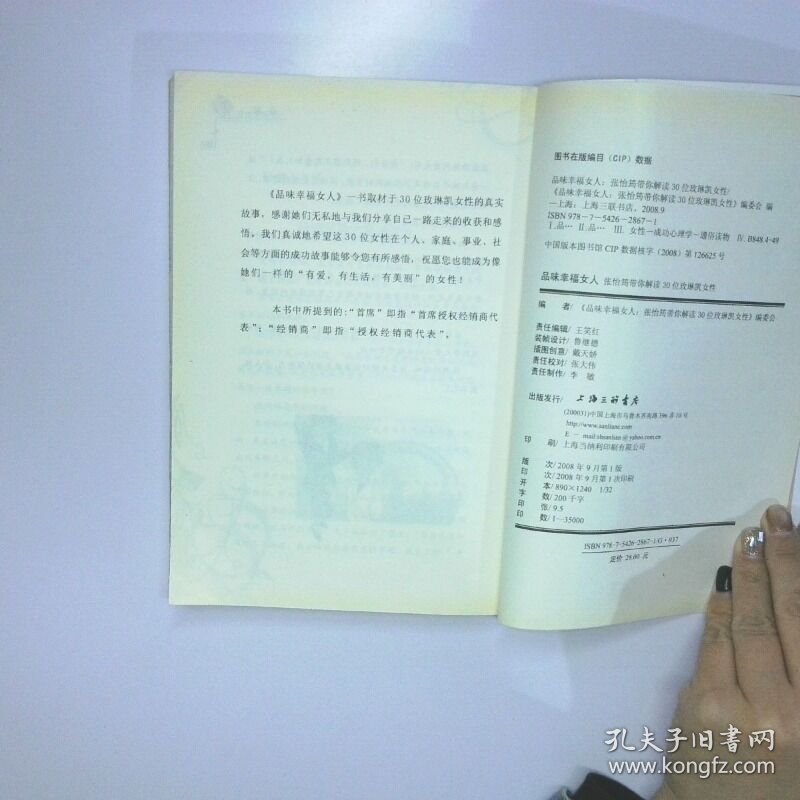 《品味幸福女人》一书取材于30位玫琳凯女性的真实
故事，感谢她们无私地与我们分享自己一路走来的收获和感
悟。我们真诚地希望这30位女性在个人、家庭、事业、社
会等方面的成功故事能够令您有所感悟，祝愿您也能成为像
她们一样的“有爱，有生活，有美丽”的女性！
本书中所提到的：“首席”即指“首席授权经销商代
表”；“经销商”即指“授权经销商代表”。
图书在版编目（CIP）数据
品味幸福女人：张怡筠带你解读30位玫琳凯女性/
《品味幸福女人：张怡筠带你解读30位玫琳凯女性》编委会 编
—上海：上海三联书店，2008.9
ISBN 978－7－5426－2867－1
Ⅰ.品… Ⅱ.品… Ⅲ. 女性－成功心理学－通俗读物 Ⅳ.B848.4-49
中国版本图书馆CIP数据核字（2008）第126625号
品味幸福女人 张怡筠带你解读30位玫琳凯女性
编 者/《品味幸福女人：张怡筠带你解读30位玫琳凯女性》编委会
责任编辑/ 王笑红
装帧设计/ 鲁继德
插图创意/ 戴天娇
责任校对/ 张大伟
责任制作/ 李 敏
出版发行/ 上海三联书店
(200031)中国上海市乌鲁木齐南路396弄10号
http://www.sanlianc.com
E－mail:shsanlian@yahoo.com.cn
印 刷/ 上海当纳利印刷有限公司
版 次/ 2008年9月第1版
印 次/ 2008年9月第1次印刷
开 本/ 890×1240 1/32
字 数/ 200千字
印 张/ 9.5
印 数/ 1—35000
ISBN 978-7-5426-2867-1/G·937
定价 28.00 元
孔夫子旧书网
www.kongfz.com